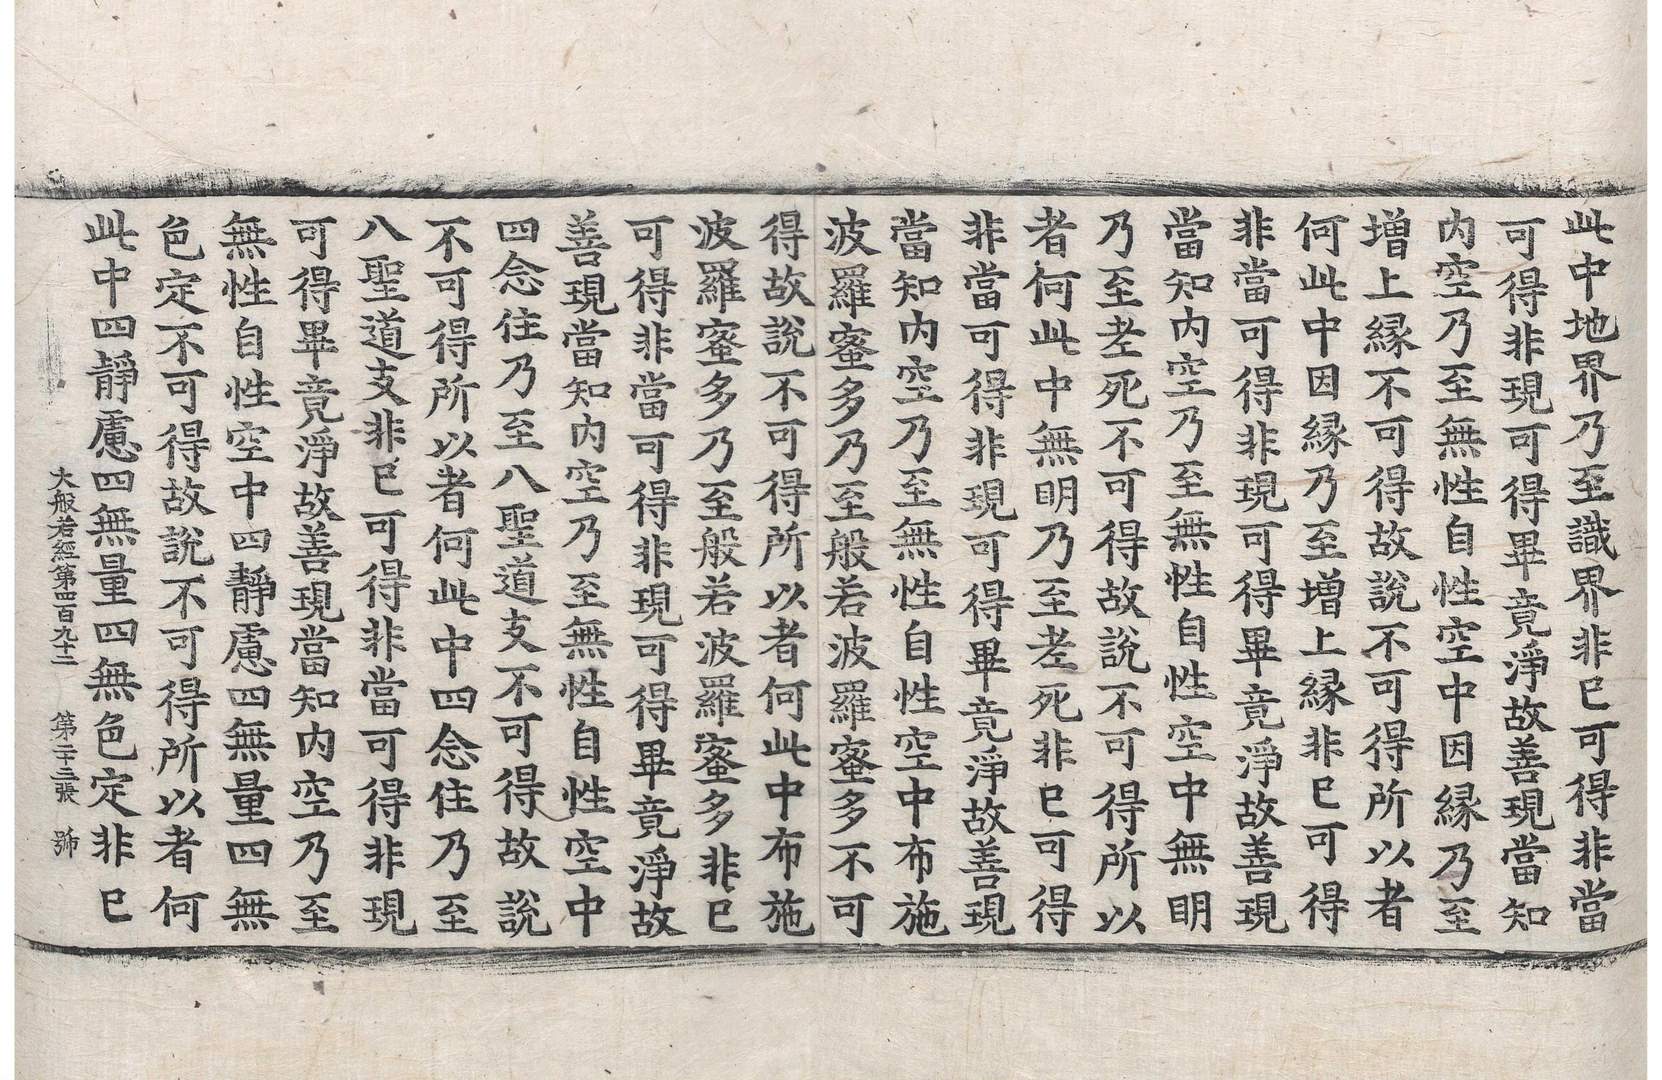 此中地界乃至識界非已可得非當
可得非現可得畢竟淨故善現當知
内空乃至無性自性空中因縁乃至
增上縁不可得故說不可得所以者
何此中因縁乃至增上縁非已可得
非當可得非現可得畢竟淨故善現
當知内空乃至無性自性空中無明
乃至老死不可得故說不可得所以
者何此中無明乃至老死非已可得
非當可得非現可得畢竟淨故善現
當知内空乃至無性自性空中布施
波羅蜜多乃至般若波羅蜜多不可
得故說不可得所以者何此中布施
波羅蜜多乃至般若波羅蜜多非已
可得非當可得非現可得畢竟淨故
善現當知内空乃至無性自性空中
四念住乃至八聖道支不可得故說
不可得所以者何此中四念住乃至
八聖道支非已可得非當可得非現
可得畢竟淨故善現當知内空乃至
無性自性空中四靜慮四無量四無
色定不可得故說不可得所以者何
此中四靜慮四無量四無色定非已
大般若經第四百九十二 第二十三張 號